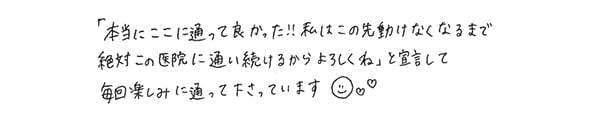 「本当にここに通って良かった!!私はこの先動けなくなるまで
絶対この医院に通い続けるからよろしくね」と宣言して
毎回楽しみに通って下さっています